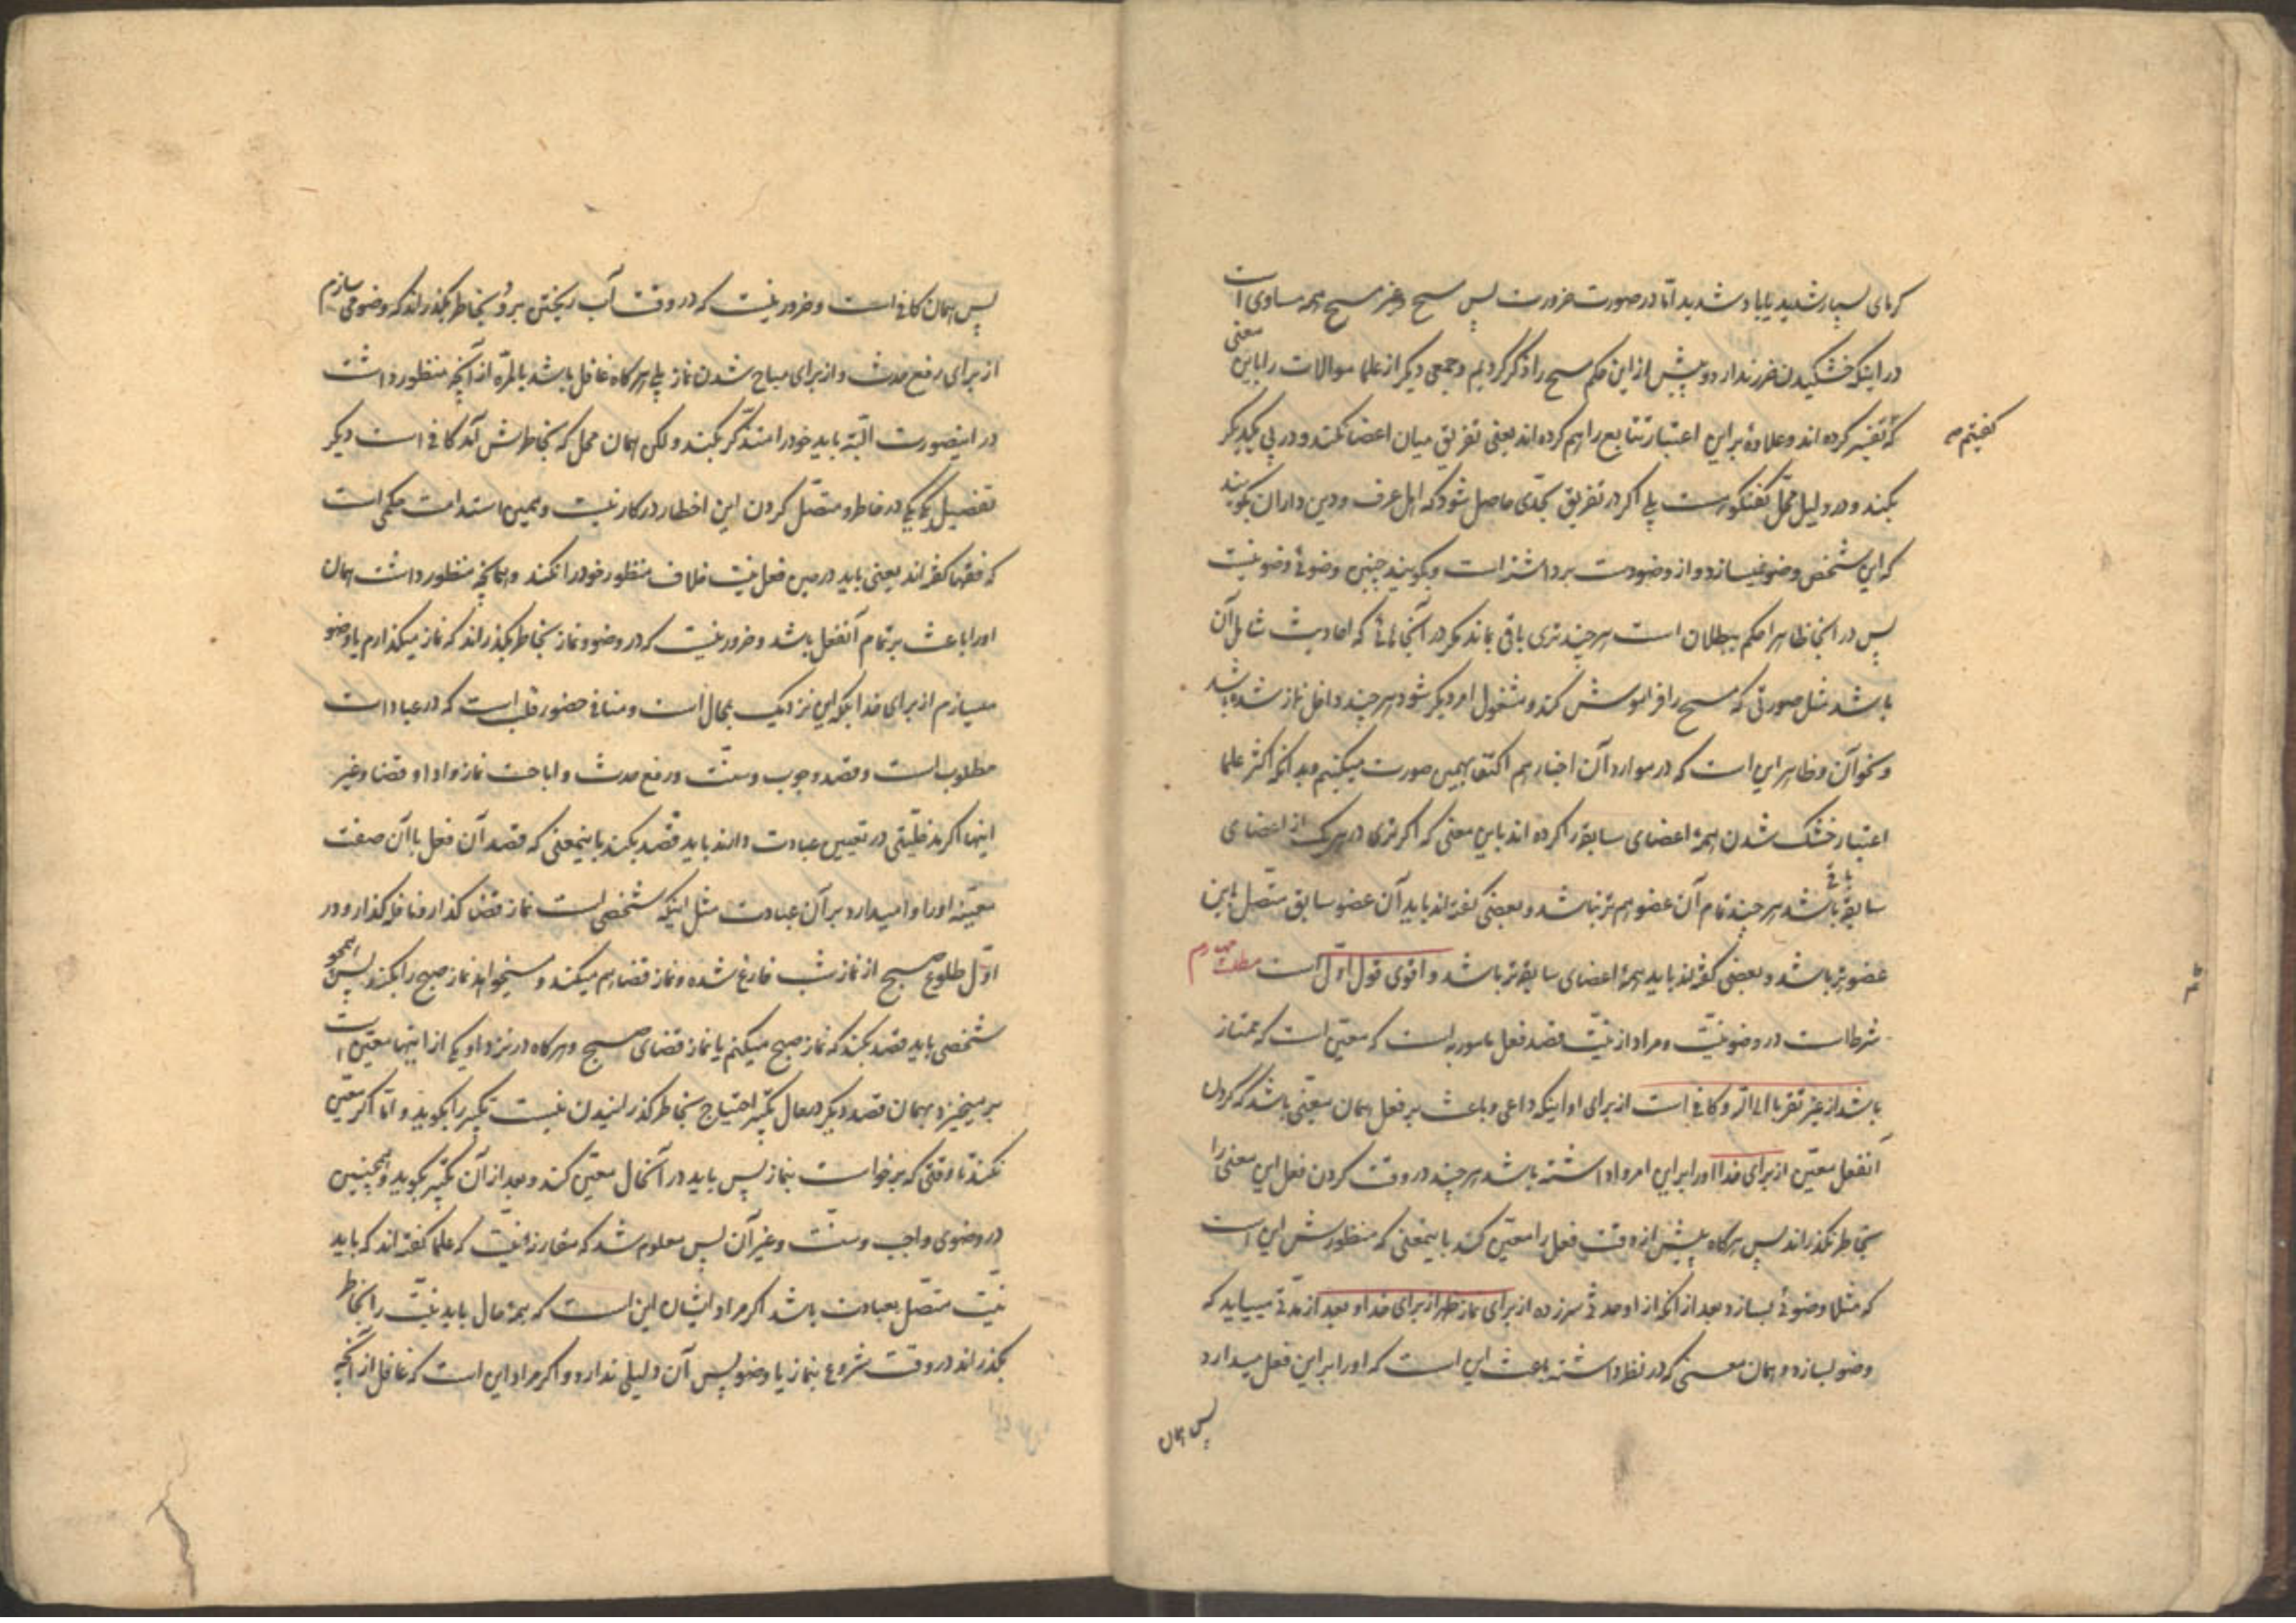 گرمای بسیار شدید یا باد شدید اما در صورت ضرورت پس مسح و غیر مسح همه مساوی است
در اینکه خشکیدن ضرر ندارد و پیش از این حکم مسح را ذکر کردیم و جمعی دیگر از علما موالات را باین معنی
که تفسیر کرده اند و علاوه بر این اعتبار تتابع را هم کرده اند یعنی تفریق میان اعضا نکنند و در پی یکدیگر
گفتیم صح
بکنند و در دلیل محل گفتگو است بلی اگر در تفریق بحدی حاصل شود که اهل عرف و دین داران بگویند
که این شخص وضو نمیسازد و از وضو دست برداشته است و بگویند چنین وضوئی وضو نیست
پس در اینجا ظاهرا حکم ببطلان است هر چند تری باقی بماند مگر در آنجاهائی که احادیث شامل آن
باشد مثل صورتی که مسح را فراموش کند و مشغول امر دیگر شود هر چند داخل نماز شده باشد
و نحو آن و ظاهر این است که در موارد آن اخبار هم اکتفا بهمین صورت میکنیم و بدانکه اکثر علما
اعتبار خشک شدن همهٔ اعضای سابقه را کرده اند باین معنی که اگر تری در هر یک از اعضای
سابقه باقی باشد هر چند تمام آن عضو هم تر نباشد و بعضی گفته اند باید آن عضو سابق متصل باین
عضو تر باشد و بعضی گفته اند باید همهٔ اعضای سابقه تر باشد و اقوی قول اول است مطلب چهارم
شرط است در وضو نیّت و مراد از نیّت قصد فعل مامور به است که معیّن است که ممتاز
باشد از غیر تقربا الی الله و کافی است از برای او اینکه داعی و باعث بر فعل همان معیّنی باشد که کردن
آنفعل معیّن از برای خدا او را بر این امر واداشته باشد هر چند در وقت کردن فعل این معنی را
بخاطر نگذراند پس هرگاه پیش از وقت فعل را معیّن کند باینمعنی که منظورش این است
که مثلا وضوئی بسازد بعد از آنکه از او حدثی سر زده از برای نماز ظهر از برای خدا و بعد از مدّتی میآید که
وضو بسازد و همان معنی که در نظر داشته باعث این است که او را بر این فعل میدارد
پس همان
پس همان کافی است و ضرور نیست که در وقت آب ریختن برو بخاطر بگذراند که وضو می سازم
از برای رفع حدث و از برای مباح شدن نماز بلی هرگاه غافل باشد بالمرّه از آنچه منظور داشت
در اینصورت البتّه باید خود را متذکّر بکند و لکن همان مجمل که بخاطرش آمد کافی است دیگر
تفصیل یک یک در خاطر و متصّل کردن این اخطار در کار نیست و همین استدامت حکمی است
که فقها گفته اند یعنی باید در بین فعل نیّت خلاف منظور خود را نکند و همانچه منظور داشت همان
او را باعث بر تمام آنفعل باشد و ضرور نیست که در وضو و نماز بخاطر بگذراند که نماز میگذارم یا وضو
میسازم از برای خدا بلکه این نزدیک بمحال است و منافی حضور قلب است که در عبادات
مطلوب است و قصد وجوب و سنّت و رفع حدث و اباحت نماز و ادا و قضا و غیر
اینها اگر مدخلیّتی در تعیین عبادت دارند باید قصد بکند باینمعنی که قصد آن فعل با آن صفت
معیّنه او را وا میدارد بر آن عبادت مثل اینکه شخصی است نماز قضا گذار و نافله گذار و در
اوّل طلوع صبح از نماز شب فارغ شده و نماز قضا هم میکند و میخواهد نماز صبح را بکند پس اینچنین
شخصی باید قصد بکند که نماز صبح میکنم یا نماز قضای صبح و هرگاه در نزد او یکی از اینها معیّن است
بر میخیزد بهمان قصد دیگر در حال تکبیر احتیاج بخاطر گذرانیدن نیست تکبیر را بگوید و امّا اگر معیّن
نکند تا وقتی که برخواست بنماز پس باید در آنحال معیّن کند و بعد از آن تکبیر بگوید و همچنین
در وضوی واجب و سنّت و غیر آن پس معلوم شد که مقارنهٔ نیّت که علما گفته اند که باید
نیّت متصّل بعبادت باشد اگر مراد ایشان این است که همه حال باید نیّت را بخاطر
بگذراند در وقت شروع بنماز یا وضو پس آن دلیلی ندارد و اگر مراد این است که غافل از آنچه